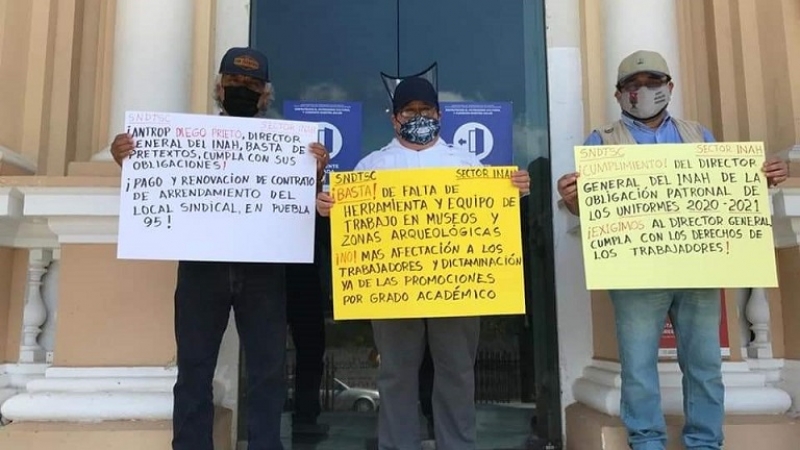 SNDTSC SECTOR INAH
¡ANTROP DIEGO PRIETO, DIRECTOR
GENERAL DEL INAH, BASTA DE
PRETEXTOS, CUMPLA CON SUS
OBLIGACIONES!
¡PAGO Y RENOVACION DE CONTRATO
DE ARRENDAMIENTO DEL
LOCAL SINDICAL, EN PUEBLA
95!
SNDTSC SECTOR INAH
¡BASTA! DE FALTA DE
HERRAMIENTA Y EQUIPO DE
TRABAJO EN MUSEOS Y
ZONAS ARQUEOLÓGICAS
¡NO! MAS AFECTACIÓN A LOS
TRABAJADORES Y DICTAMINACIÓN
YA DE LAS PROMOCIONES
POR GRADO ACADÉMICO
SNDTSC SECTOR INAH
¡CUMPLIMIENTO! DEL DIRECTOR
GENERAL DEL INAH DE LA
OBLIGACIÓN PATRONAL DE
LOS UNIFORMES 2020-2021
¡EXIGIMOS AL DIRECTOR GENERAL
CUMPLA CON LOS DERECHOS DE
LOS TRABAJADORES!